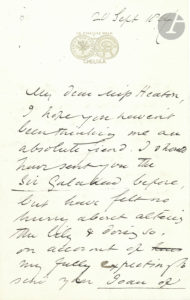 20 Sept
CHELSEA
My dear Miss Heaton,
I hope you haven't
been thinking me an
absolute fiend. I should
have sent you the
Sir Galahad before,
but have felt no
hurry about
the
on account of
my fully expecting to
send you Joan of